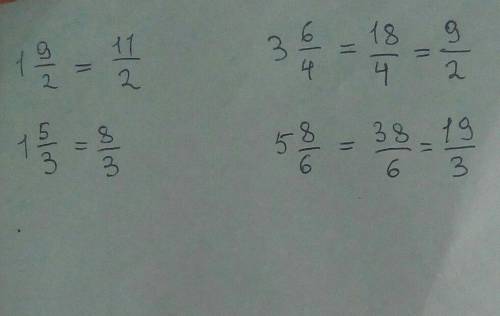 1 9/2 = 11/2
3 6/4 = 18/4 = 9/2
1 5/3 = 8/3
5 8/6 = 38/6 = 19/3